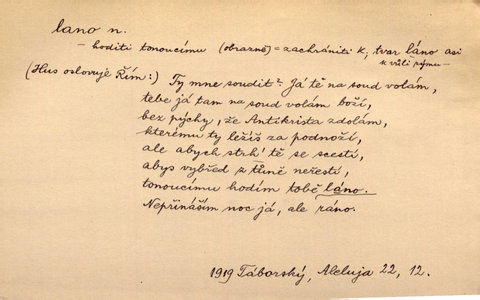 lano n.
– hoditi tonoucímu (obrazně) = zachrániti k; tvar láno asi
k vůli rýmu –
(Hus oslovuje Řím:) Ty mne soudit? Já tě na soud volám,
tebe já tam na soud volám boží,
bez pýchy, že Antikrista zdolám,
kterému ty ležíš za podnoží,
ale abych strh' tě se scestí,
abys vybřed z tůně neřestí,
tonoucímu hodím tobě láno.
Nepřináším noc já, ale ráno.
1919 Táborský, Aleluja 22, 12.